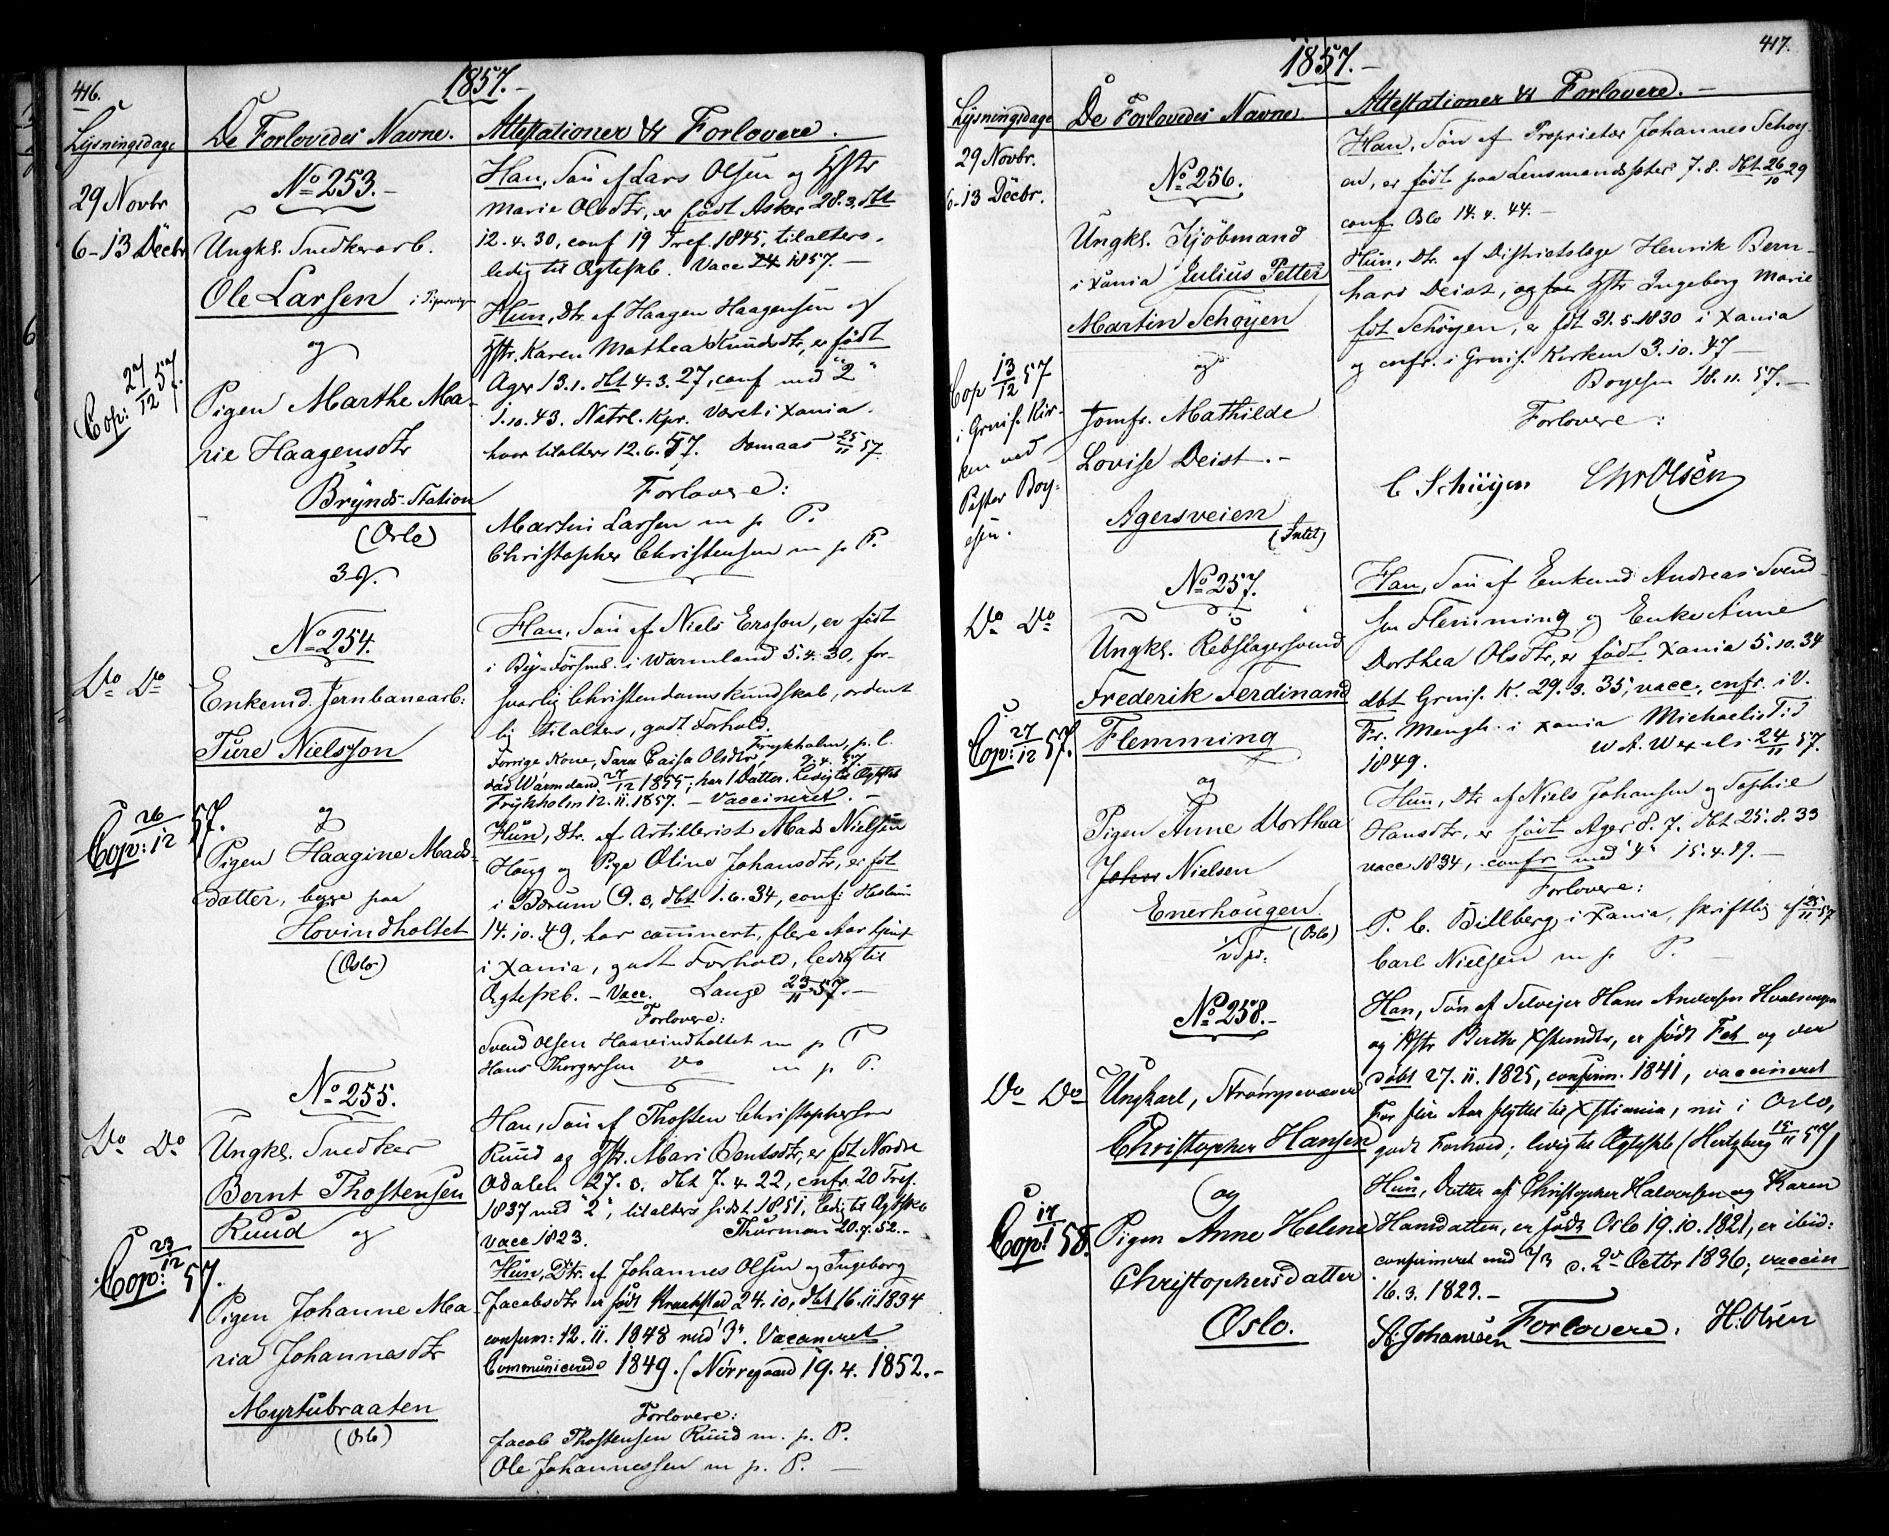 416.
1857.-
Lysningsdage
De Forlovedes Navne.
Attestationer & Forlovere.
29 Novbr
6-13 Decbr
No 253.-
Ungkl. Snedkerarb.
Ole Larsen
og
Pigen Marthe Ma-
rie Haagensdtr
Bryns-Station
(Oslo)
Cop: 27/12 57.
Han, Søn af Lars Olsen og Hstr
Marie Olsdtr, er født Asker 28.3. dbt
12.4.30, conf 19 Tref. 1845, tilalters.
ledig til Ægteskb. Vacc 24 1857.-
Hun, Dtr. af Haagen Haagensen og
Hstr. Karen Mathea Knudsdtr, er født
Ager 13.1. dbt 4.3.27, conf med "2"
1.10.43. Natrl. Kpr. Været i Xania.
hvor tilalters 12.6.57. 25/11 57.
Forlovere:
Martin Larsen m p P.
Christopher Christensen m p P.
No 254.
Do Do
Enkemd. Jernbanearb:
Ture Nielsson
og
Pigen Haagine Mads-
datter, begge paa
Hovindholtet
(Oslo)
Cop: 26/12 57.
Han, Søn af Niels Ersson, er født
i Wärmland 5.4.30, for-
svarlig Christendomskundskab, ordent
lig tilalters, godt Forhold.
Forrige Kone, Sara Caisa Olsdtr,
død Wärmeland 27/12 1855; har 1 Datter. Ledig til Ægtskb
Frykholm 12.11.1857.- Vaccineret.-
Hun, Dtr. af Artillerist Mads Nielsen
Haug og Pige Oline Johansdtr, erføt
i Bærum 9.3. dbt 1.6.34, conf: Haslum
14.10.49, har tjent flere Aar
i Xania, godt Forhold, ledig til
Ægteskb.- Vacc. Lange 23/11 57.-
Forlovere:
Svend Olsen Haavindholtet m p P
Hans Thorgersen Do m p P.
No 255.
Do Do
Ungkl. Snedker
Bernt Thostensen
Ruud og
Pigen Johanne Ma-
ria Johannesdtr
Myrtubraaten
(Oslo)
Cop: 23/12 57.
Han, Søn af Thosten Christophersen
Ruud og Hstr. Mari Bentsdtr, er fdt Nordre
Odalen 27.3. dbt 7.4.22, cnfr. 20 Tref.
1837 med "2", tilalters sidst 1851, ledig til Ægtskb
vacc 1823. Thurman 20.7.52.-
Hun, Dtr. af Johannes Olsen og Ingeborg
Jacobsdtr er født Kraakstad 24.10, dbt 16.11.1834
confirm: 12.11.1848 med "3". Vaccineret
Communicerede 1849. (Nørregaard 19.4.1852.-
Forlovere:
Jacob Thostensen Ruud m. p. P.
Ole Johannessen m p. P.-
417.
1857.-
Lysningsdage
De Forlovedes Navne.
Attestationer & Forlovere.-
29 Novbr.
6-13 Decbr.
No 256.
Ungkl. Kjöbmand
i Xania Julius Petter
Martin Schöyen
og
Jomfr. Mathilde
Lovise Deist.-
Agersveien
(Intet)
Cop 13/12 57
i Grnis. Kir-
ken ved
Pastor Boy-
esen.
Han, Søn af Proprietær Johannes Schøy-
en, er født paa Lensmandsseter 7.8. dbt 26/10 29
conf Oslo 14.4.44.-
Hun, Dtr. af Districtslæge Henrik Bern-
hard Deist, og Hstr Ingeborg Marie
fdt Schöyen, er fdt 31.5.1830 i Xania
og cnfr. i Grnis. Kirken 3.10.47-
Boyesen 18.11.57.-
Forlovere:
C Schöyen Chr Olsen
No 257.
Do Do
Ungkl. Rebslagersvend
Frederik Ferdinand
Flemming
og
Pigen Anne Dorthea
Nielsen
Enerhougen
(Oslo)
Cop: 27/12 57.
Han, Søn af Enkemd Andreas Svend-
sen Flemming og Enke Anne
Dorthea Olsdtr, er født Xania 5.10.34
dbt Grnis. K. 29.3.35, vacc, cnfr. i V.
Fr. Mengh. i Xania Michaelis Tid
1849. W. A. Wexels 24/11 57.
Hun, Dtr af Niels Johansen og Sophie
Hansdtr, er født Ager 8.7. dbt 25.8.33
vacc 1834, confr med "4" 15.4.49.-
Forlovere:
P. C. Billberg i Xania, skriftlig af 25/11 57
Carl Nielsen m p P.-
No 258.-
Do Do
Ungkarl, Strømpevæver
Christopher Hansen
og
Pigen Anne Helene
Christophersdatter
Oslo.
Cop: 17/1 58.
Han, Søn af Selvejer Hans Andersen
og Hstr Berthe er født Fet og der
døbt 27.11.1825, confirm. 1841, vaccineret
For fire Aar flyttet til Xstiania, nu i Oslo,
godt Forhold; ledig til Ægteskb (Hertzberg 15/11 57)
Hun, Datter af Christopher Halvorsen og Karen
Hansdatter, er født Oslo 19.10.1821, er ibid:
confirmeret med d. 2den Octbr 1836; vaccin
16.3.1823.-
Forlovere:
St: Johansen H: Olsen